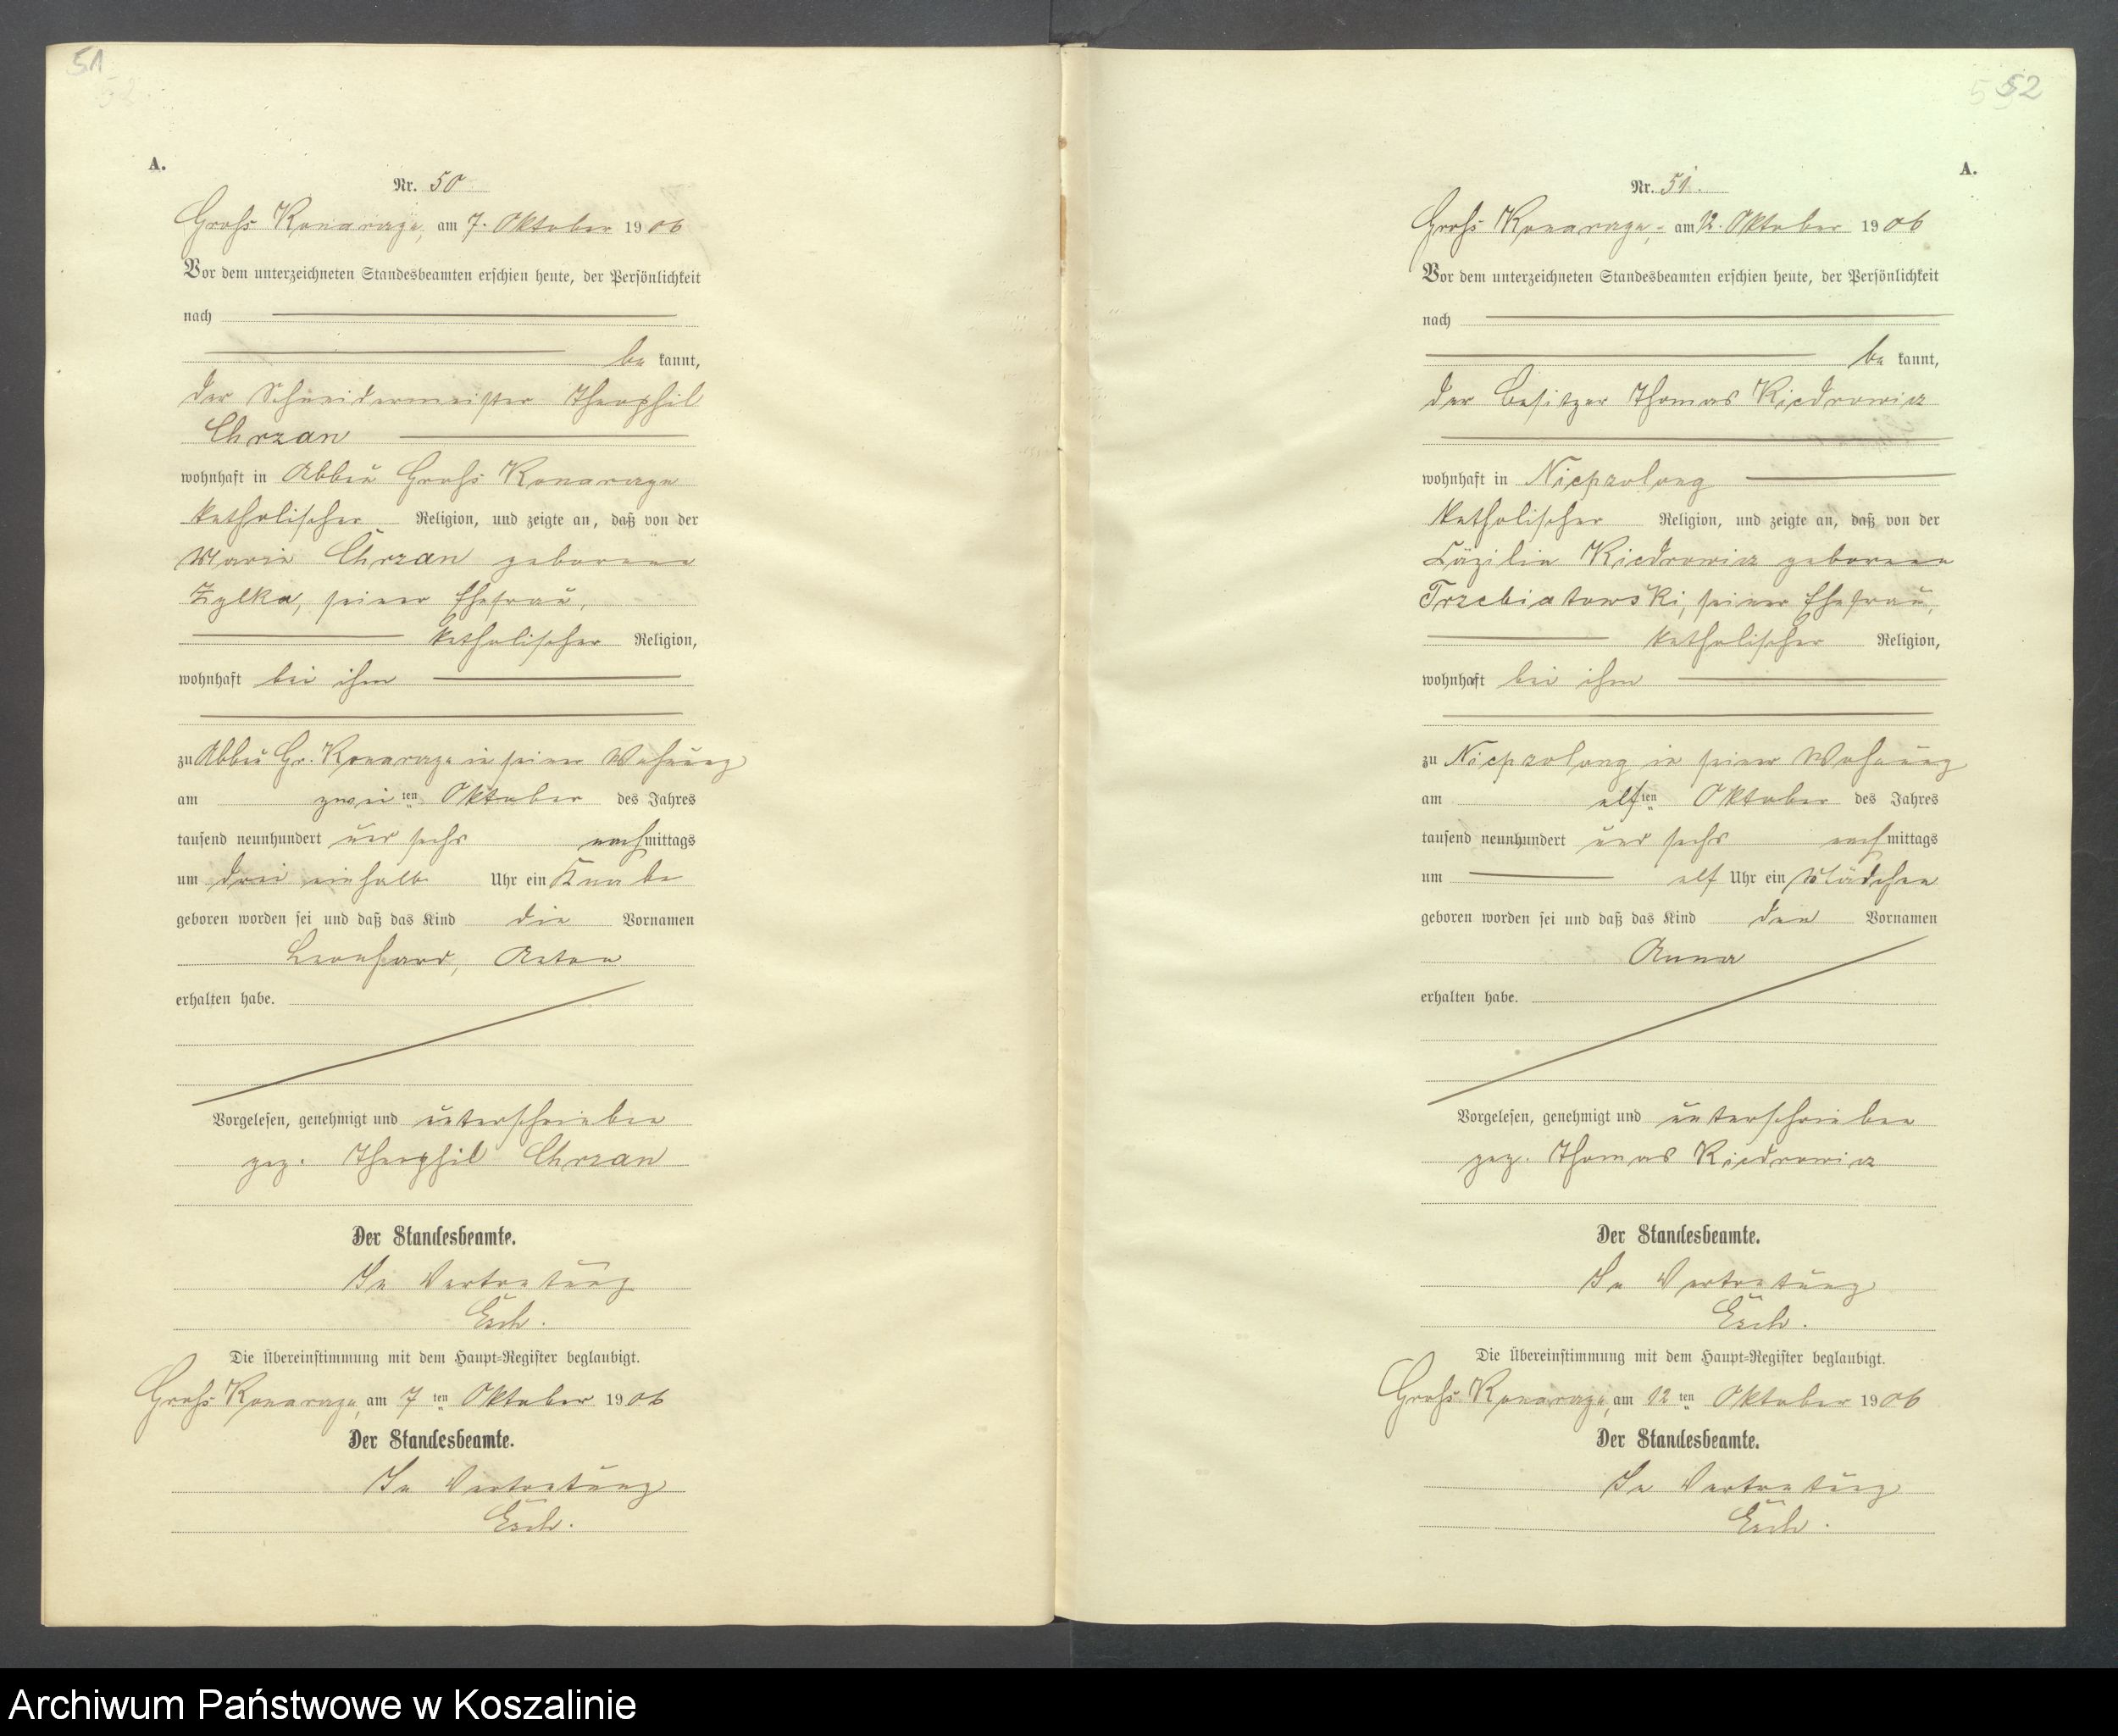 51
A.
Nr. 50
Groß Konarczyn, am 7. Oktober 1906
Vor dem unterzeichneten Standesbeamten erschien heute, der Persönlichkeit
nach
be kannt,
der Schneidermeister Theophil
Chrzan
wohnhaft in Abbau Groß Konarczyn
katholischer Religion, und zeigte an, daß von der
Marie Chrzan geborene
Zylka, seiner Ehefrau,
katholischer Religion,
wohnhaft bei ihm
zu Abbau Gr. Konarczyn in seiner Wohnung
am zwei ten Oktober des Jahres
tausend neunhundert und sechs nachmittags
um drei einhalb Uhr ein Knabe
geboren worden sei und daß das Kind die Vornamen
Leonhard, Anton
erhalten habe.
Vorgelesen, genehmigt und unterschrieben
gez. Theophil Chrzan
Der Standesbeamte.
In Vertretung
Esch.
Die Übereinstimmung mit dem Haupt-Register beglaubigt.
Groß Konarczyn, am 7 ten Oktober 1906
Der Standesbeamte.
In Vertretung
Esch.
52
A.
Nr. 51.
Groß Konarczyn, am 12. Oktober 1906
Vor dem unterzeichneten Standesbeamten erschien heute, der Persönlichkeit
nach
be kannt,
der Besitzer Thomas Kiedrowicz
wohnhaft in Niepszolong
katholischer Religion, und zeigte an, daß von der
Cäzilia Kiedrowicz geborene
Trzebiatowski, seiner Ehefrau,
katholischer Religion,
wohnhaft bei ihm
zu in seiner Wohnung
am elf ten Oktober des Jahres
tausend neunhundert und sechs nachmittags
um elf Uhr ein Mädchen
geboren worden sei und daß das Kind den Vornamen
Anna
erhalten habe.
Vorgelesen, genehmigt und unterschrieben
gez. Thomas Kiedrowicz
Der Standesbeamte.
In Vertretung
Esch.
Die Übereinstimmung mit dem Haupt-Register beglaubigt.
Groß Konarczyn, am 12 ten Oktober 1906
Der Standesbeamte.
In Vertretung
Esch.
Archiwum Państwowe w Koszalinie